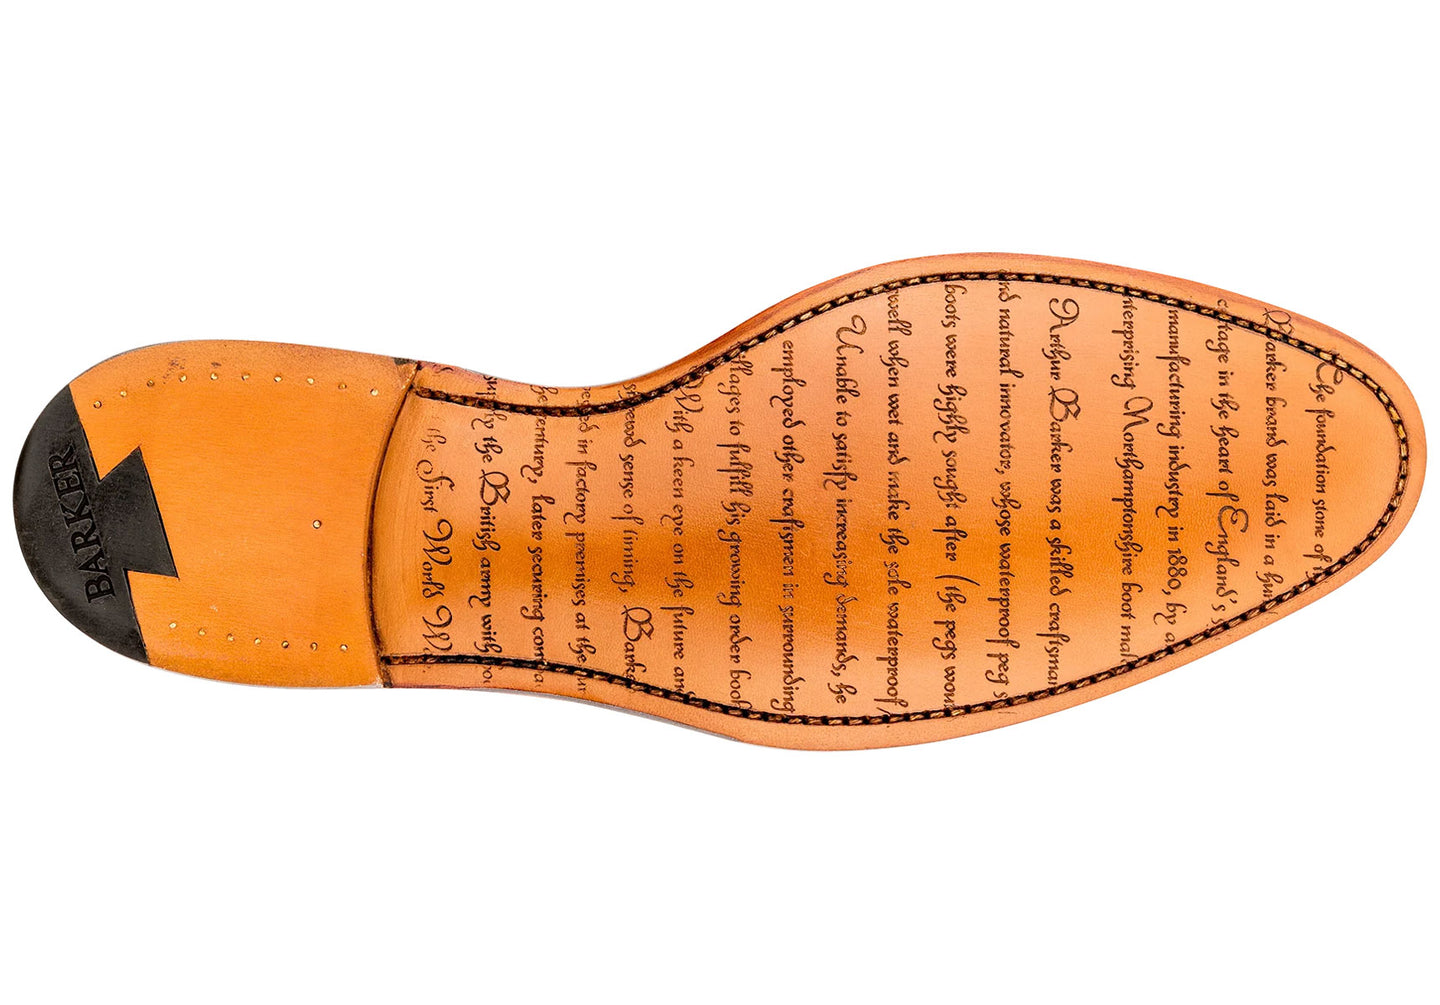 The foundation stone of
Barker brand was laid in a
cottage in the heart of England's
manufacturing industry in 1880, by
Northamptonshire boot
Arthur Barker was a skilled
natural innovator, whose waterproof peg
boots were highly sought after (the pegs
well when wet and make the sole waterproof)
Unable to satisfy increasing demands, he
employed other craftsmen in surrounding
to fulfill his growing order
With a keen eye on the future
sense of timing,
in factory premises at the
century, later securing
the British army with
the First World
BARKER